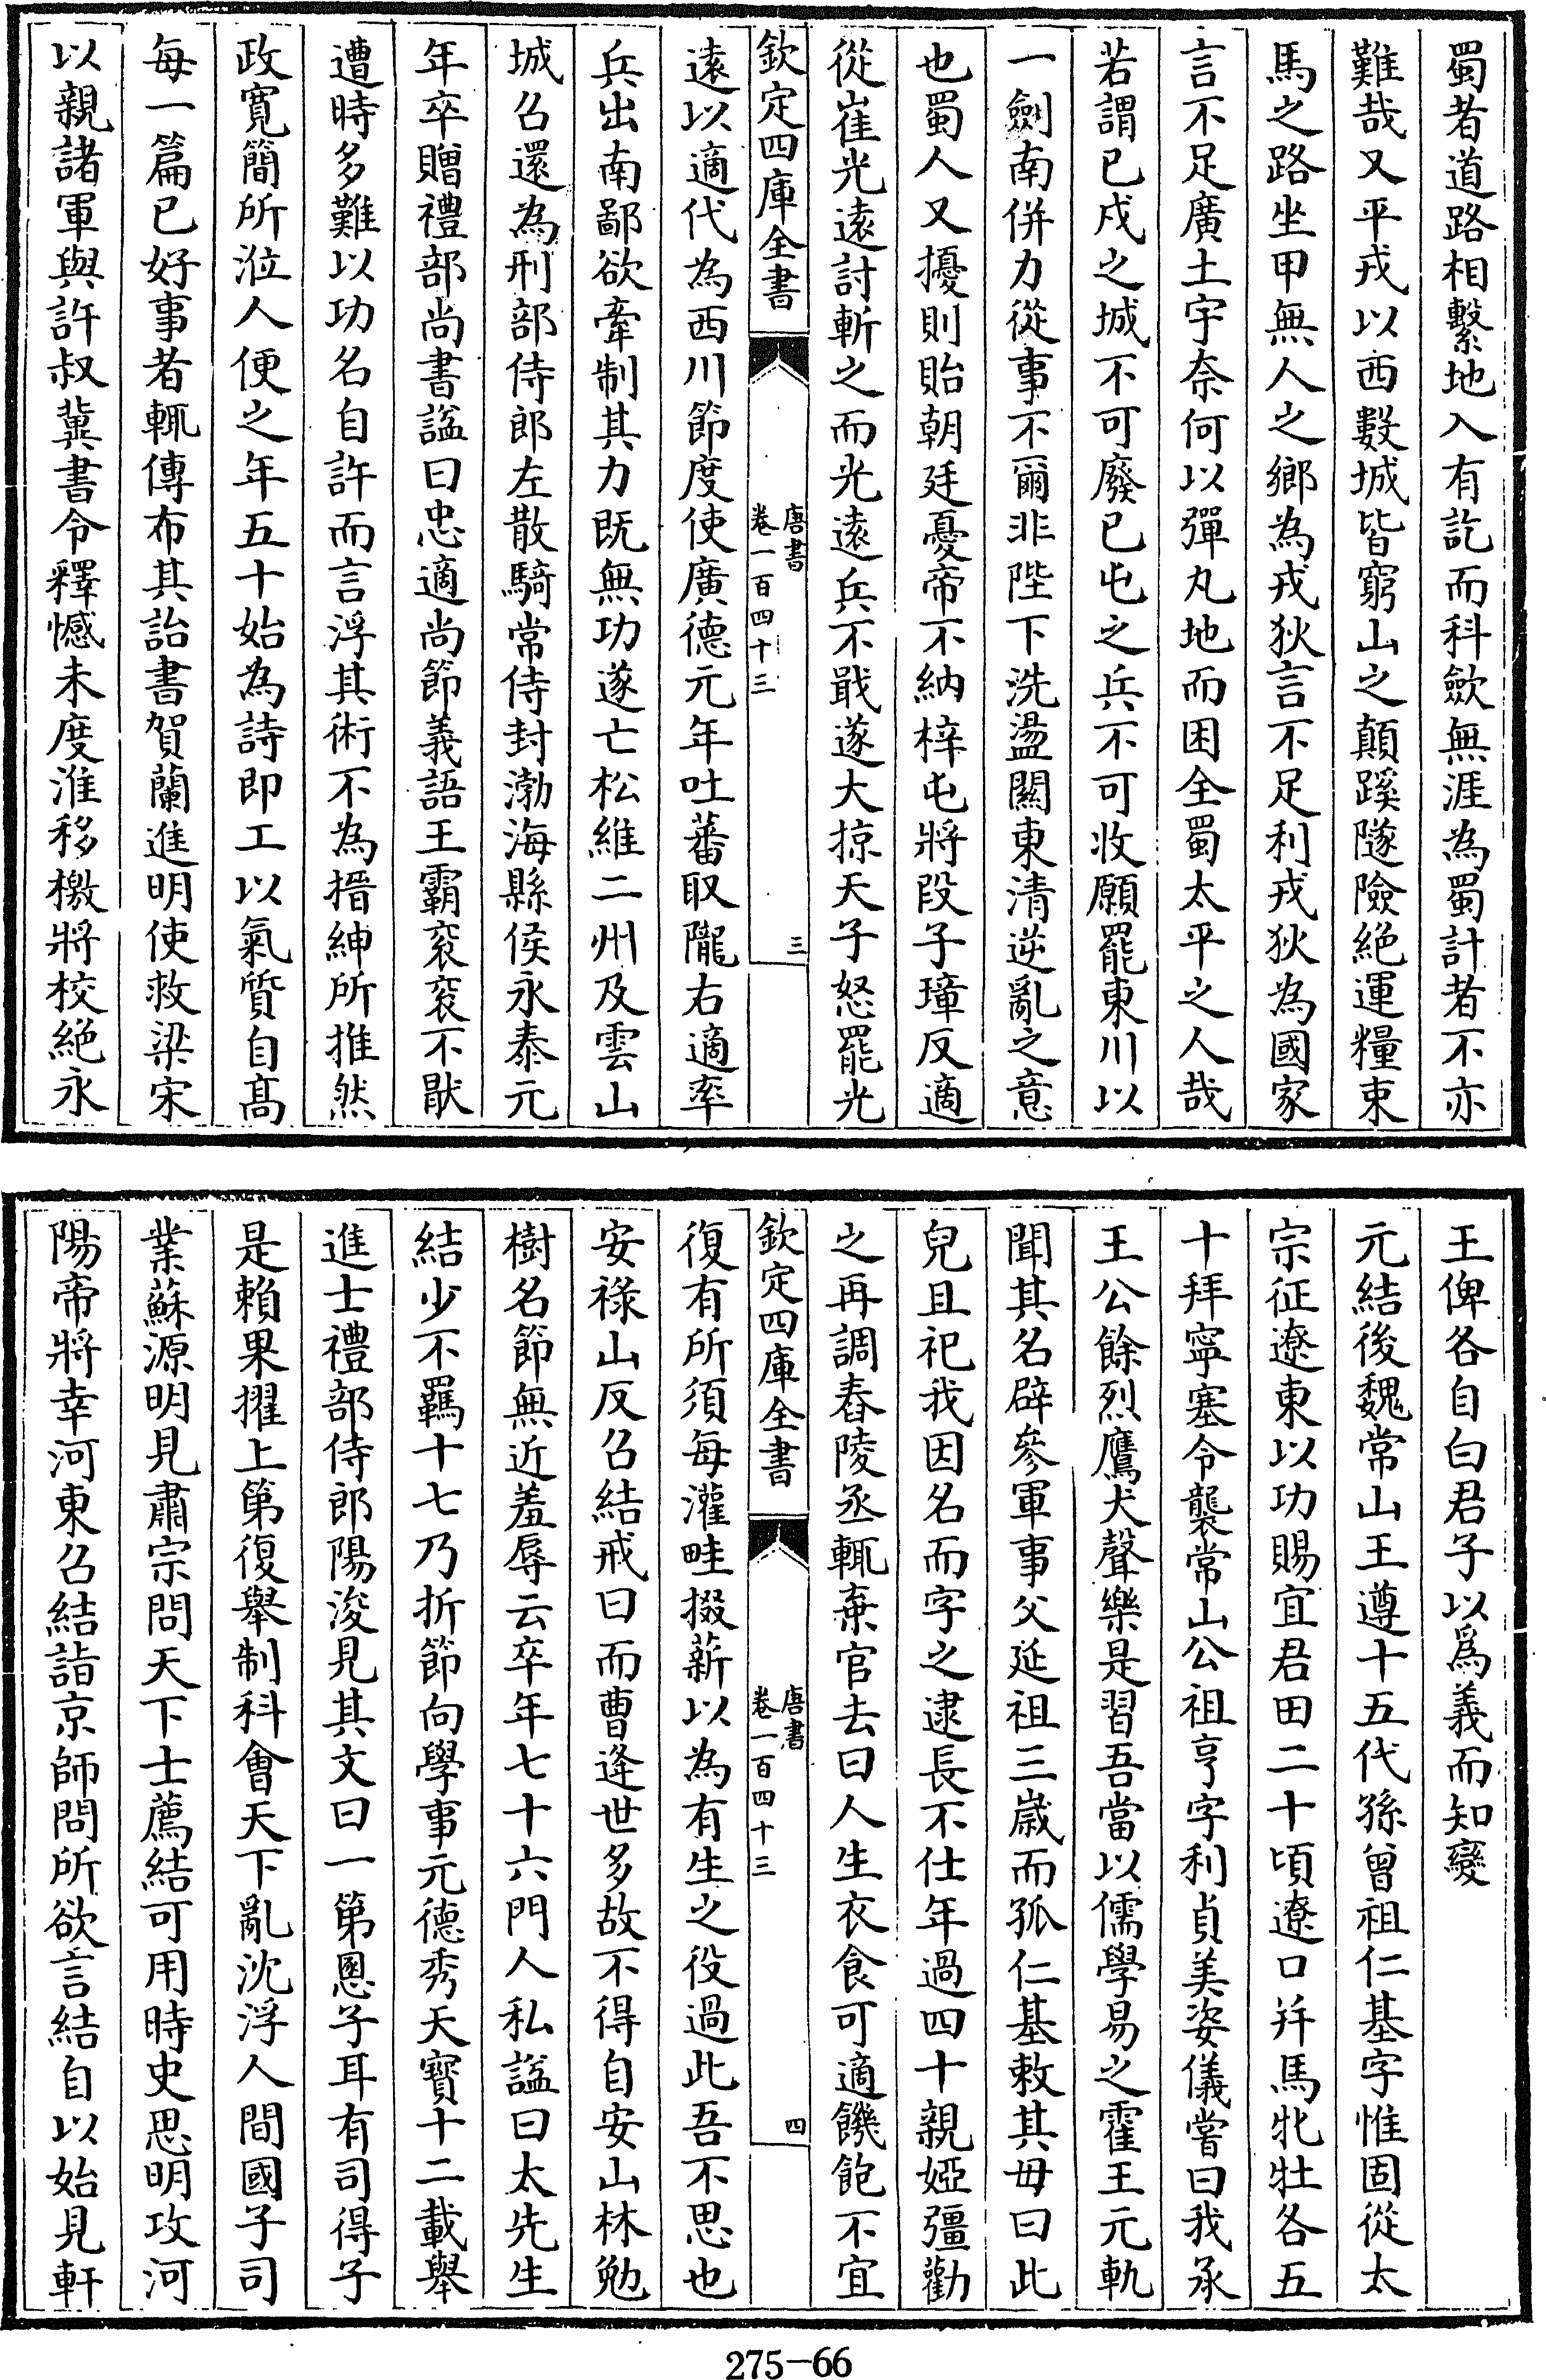 蜀者道路相繫地入有訖而科歛無涯為蜀計者不亦
難哉又平戎以西數城皆窮山之顛蹊隧險絶運糧束
馬之路坐甲無人之鄉為戎狄言不足利戎狄為國家
言不足廣土宇奈何以彈丸地而困全蜀太平之人哉
若謂已戍之城不可廢已屯之兵不可收願罷東川以
一劍南併力從事不爾非陛下洗盪關東清逆亂之意
也蜀人又擾則貽朝廷憂帝不納梓屯將段子璋反適
從崔光逺討斬之而光逺兵不戢遂大掠天子怒罷光
欽定四庫全書
唐書
卷一百四十三
三
逺以適代為西川節度使廣德元年吐蕃取隴右適率
兵出南鄙欲牽制其力既無功遂亡松維二州及雲山
城召還為刑部侍郎左散騎常侍封渤海縣侯永泰元
年卒贈禮部尚書諡曰忠適尚節義語王霸衮衮不厭
遭時多難以功名自許而言浮其術不為搢紳所推然
政寛簡所涖人便之年五十始為詩即工以氣質自髙
每一篇已好事者輒傳布其詒書賀蘭進明使救梁宋
以親諸軍與許叔冀書令釋憾未度淮移檄將校絶永
王俾各自白君子以爲義而知變
元結後魏常山王遵十五代孫曾祖仁基字惟固從太
宗征遼東以功賜宜君田二十頃遼口并馬牝牡各五
十拜寧塞令襲常山公祖亨字利貞美姿儀嘗曰我承
王公餘烈鷹犬聲樂是習吾當以儒學易之霍王元軌
聞其名辟參軍事父延祖三嵗而孤仁基敕其母曰此
兒且祀我因名而字之逮長不仕年過四十親婭彊勸
之再調舂陵丞輒棄官去曰人生衣食可適饑飽不宜
欽定四庫全書
唐書
卷一百四十三
四
復有所須每灌畦掇薪以為有生之役過此吾不思也
安禄山反召結戒曰而曹逢世多故不得自安山林勉
樹名節無近羞辱云卒年七十六門人私諡曰太先生
結少不羈十七乃折節向學事元德秀天寳十二載舉
進士禮部侍郎陽浚見其文曰一第慁子耳有司得子
是賴果擢上第復舉制科會天下亂沈浮人間國子司
業蘇源明見肅宗問天下士薦結可用時史思明攻河
陽帝將幸河東召結詣京師問所欲言結自以始見軒
275-66